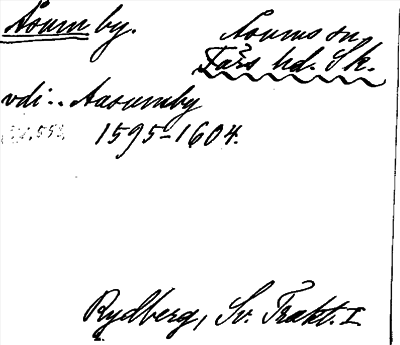 Åsum by.
Åsums sn,
Färs hd. Sk.
vdi.. Aasumby
1595-1604.
Rydberg, Sv. Trakt. I